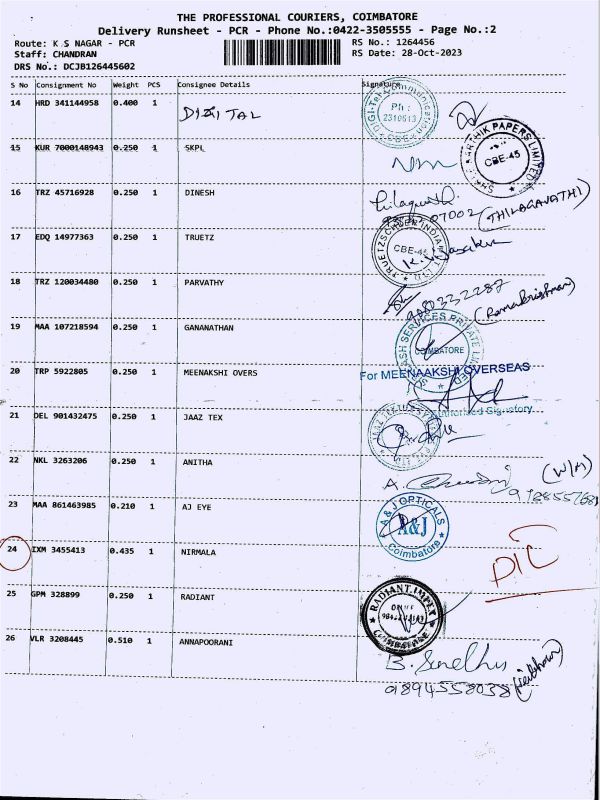 THE PROFESSIONAL COURIERS, COIMBATORE
Delivery Runsheet - PCR - Phone No.:0422-3505555 - Page No.:2
Route: K S NAGAR - PCR RS No.: 1264456
Staff: CHANDRAN RS Date: 28-Oct-2023
DRS No.: DCJB126445602
S No Consignment No Weight PCS Consignee Details Signature
14 HRD 341144958 0.400 1 DIGITAL
DIGI-Tal Communication Ph: 2310613 CBE
15 KUR 7000148943 0.250 1 SKPL
KARTHIK PAPERS LIMITED CBE-45
16 TRZ 45716928 0.250 1 DINESH
07002 (THILAGAVATHI)
17 EDQ 14977363 0.250 1 TRUETZ
TRUETZSCHLER INDIA CBE-45
18 TRZ 120034480 0.250 1 PARVATHY
9080332287 (Ramakrishnan)
19 MAA 107218594 0.250 1 GANANATHAN
SERVICES PRIVATE LIMITED COIMBATORE
20 TRP 5922805 0.250 1 MEENAKSHI OVERS
For MEENAAKSHI OVERSEAS
Authorised Signatory
21 DEL 901432475 0.250 1 JAAZ TEX
JAAZ
22 NKL 3263206 0.250 1 ANITHA
A. (W/H)
23 MAA 861463985 0.210 1 AJ EYE
A & J OPTICALS A&J Coimbatore
24 IXM 3455413 0.435 1 NIRMALA
D/C
25 GPM 328899 0.250 1 RADIANT
RADIANT IMPEX COIMBATORE
26 VLR 3208445 0.510 1 ANNAPOORANI
B. Sindhu
9894558038